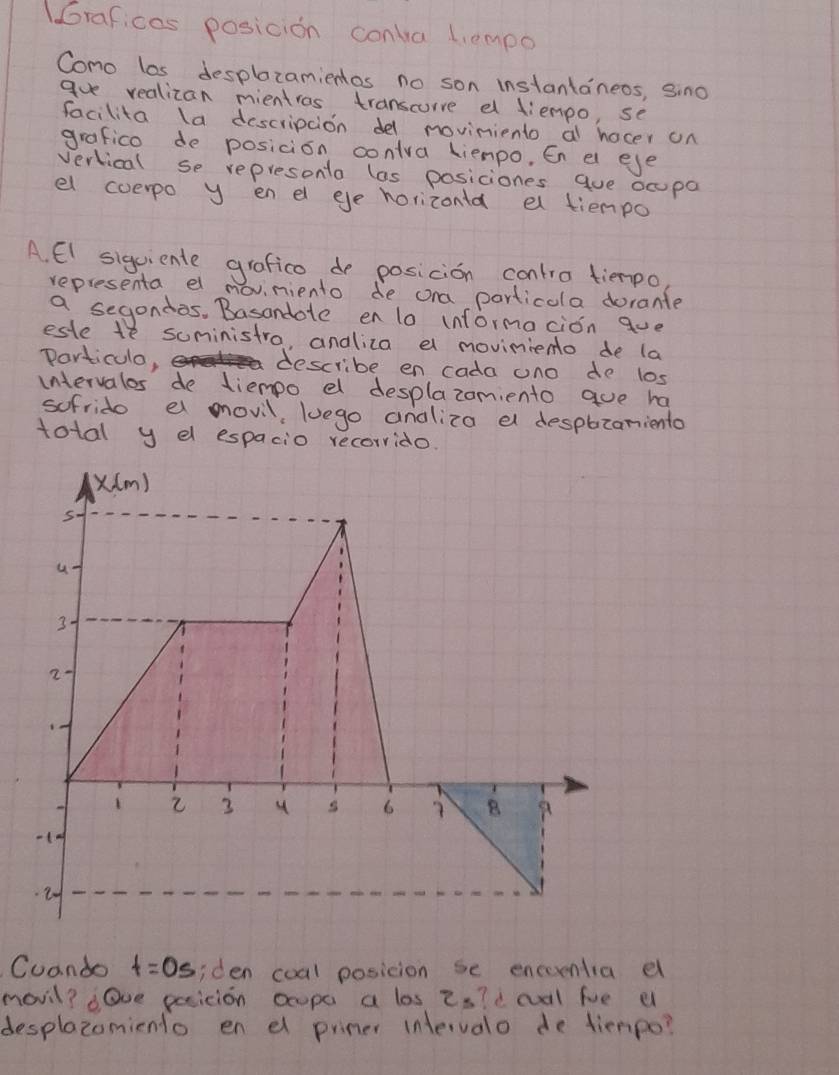 1.Graficas posición contra tiempo
Como los desplazamientos no son instantáneos, sino
que realizan mientras transcurre el tiempo, se
facilita la descripción del movimiento al hacer un
grafico de posición contra tiempo. En el eje
vertical se representa las posiciones que ocupa
el cuerpo y en el eje horizontal el tiempo
A.El siguiente grafico de posición contra tiempo,
representa el movimiento de una particula durante
9 segundos. Basandote en la información que
este te suministra, analiza el movimiento de la
Particula, describe en cada uno de los
intervalos de tiempo el desplazamiento que ha
sufrido el movil. luego analiza el desplazamiento
total y el espacio recorrido.
X(m)
5
4
3
2
1
1 2 3 4 5 6 7 8 9
-1
-2
Cuando t=0s;¿en cual posicion se encuentra el
movil?¿Que posición ocupa a los 2s?¿cual fue el
desplazamiento en el primer intervalo de tiempo?